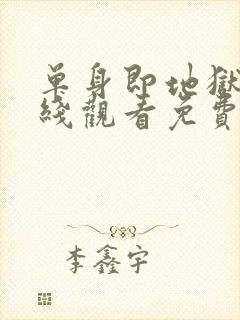 单身即地獄
綫觀看免費
李鑫宇